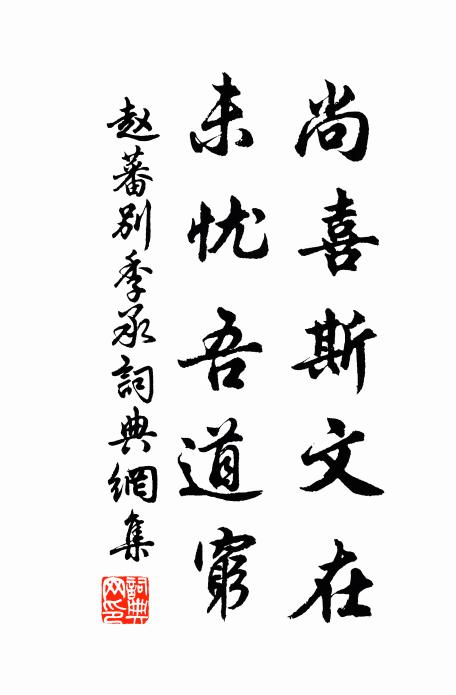 尚喜斯文在
未忧吾道窮
赵蕃别季承詞典網集
詞典网印